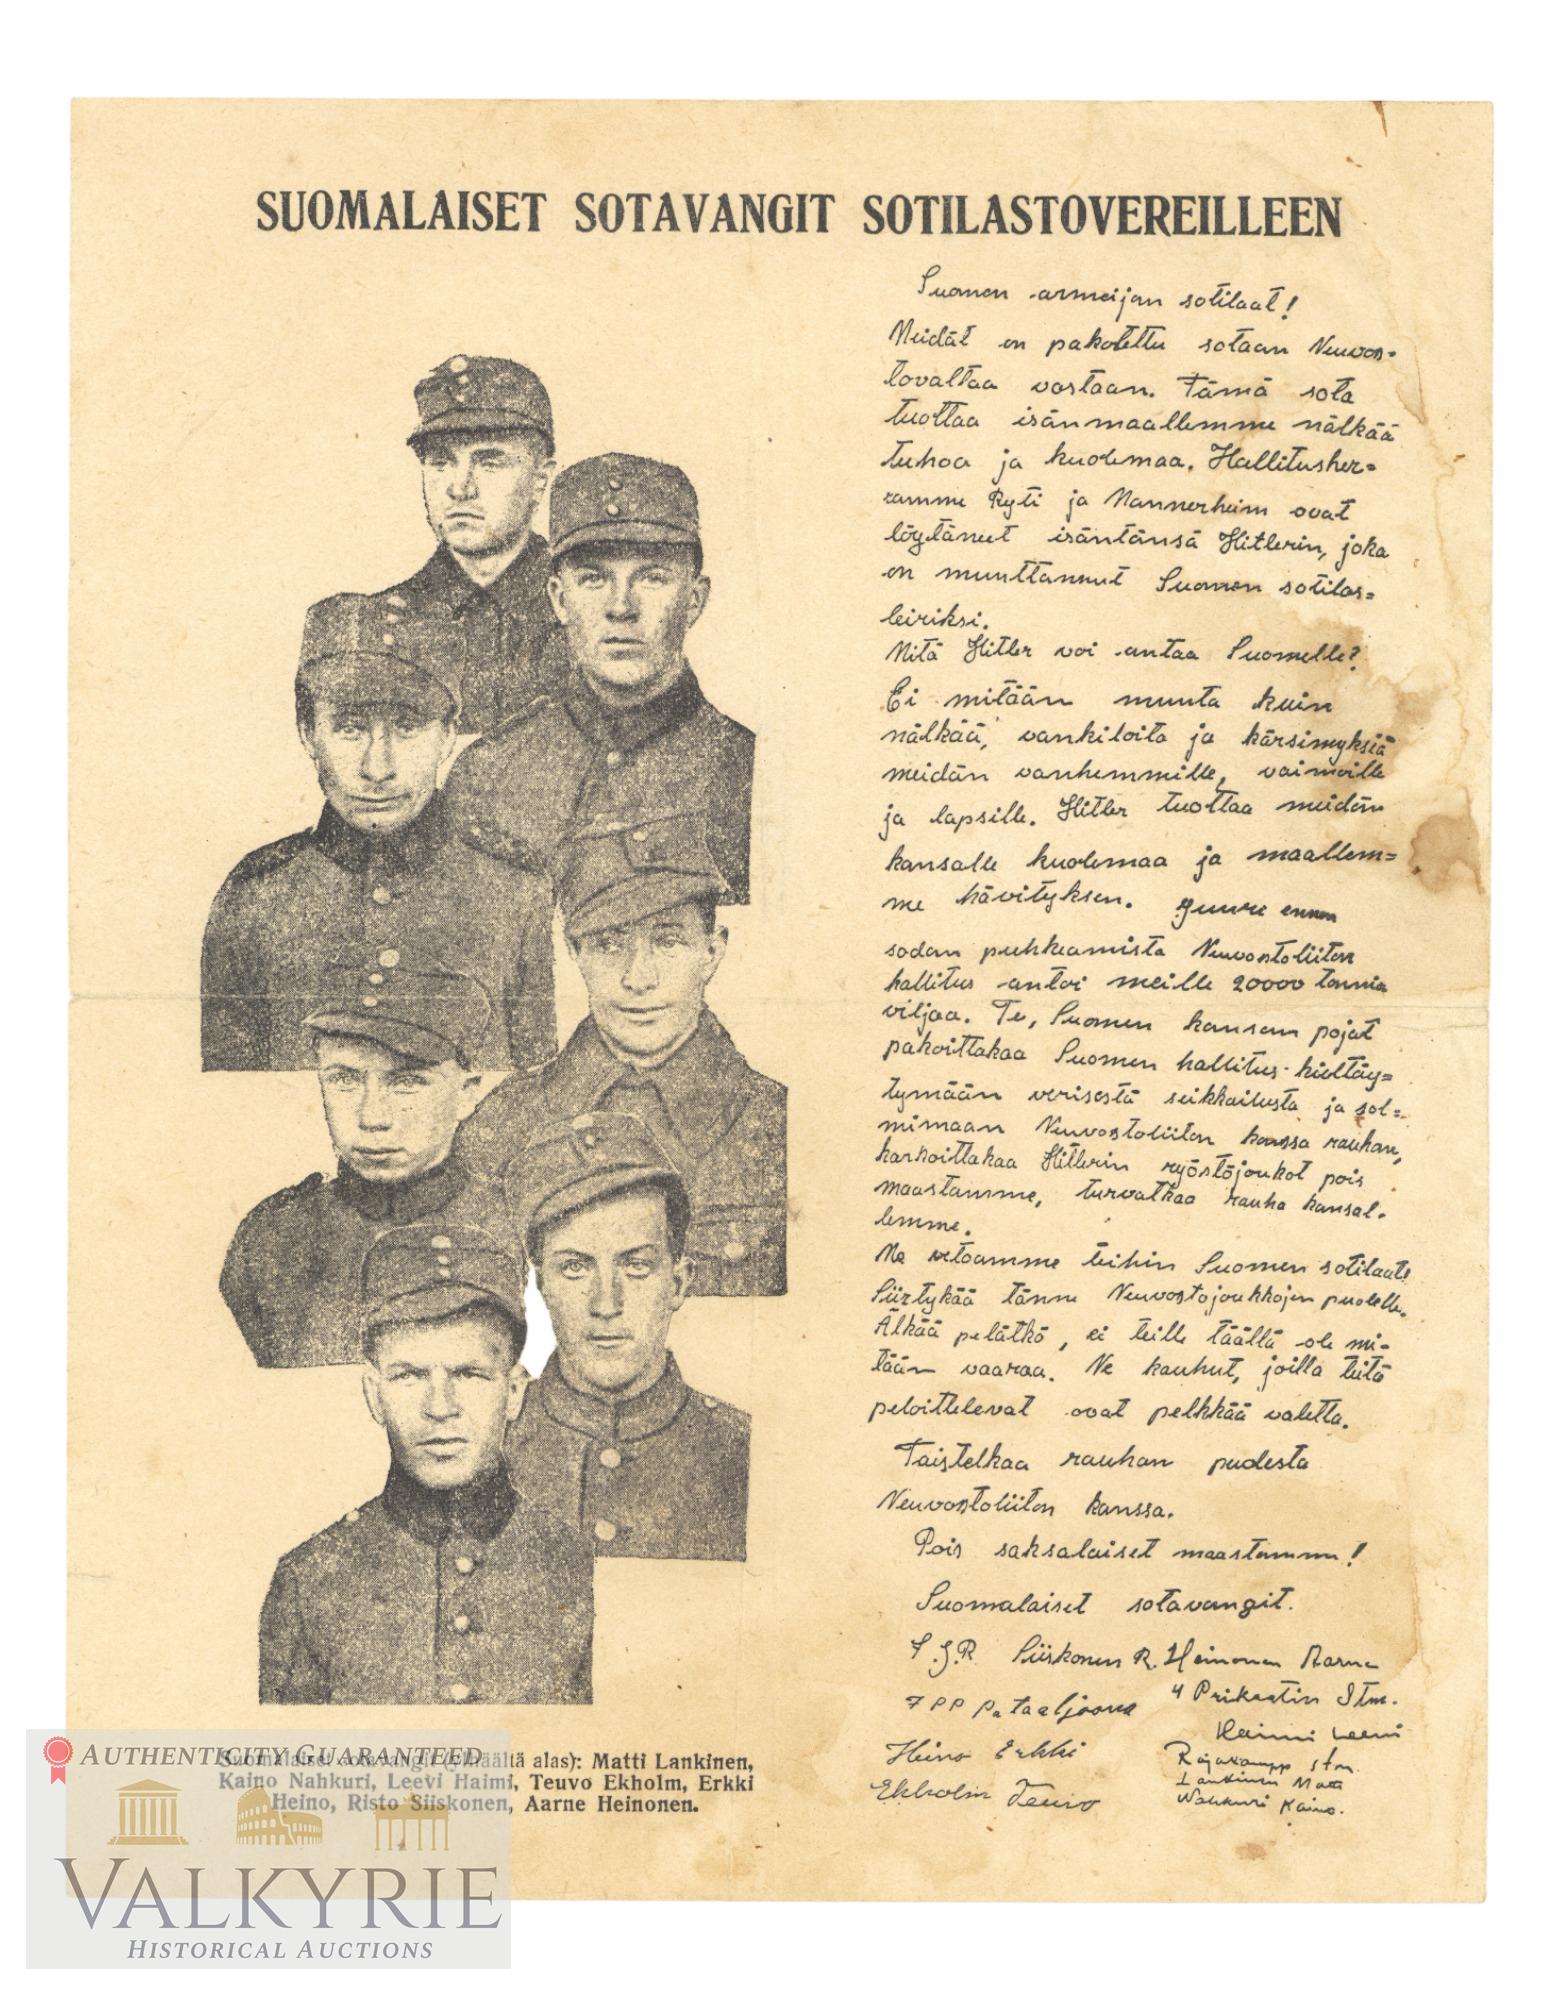 SUOMALAISET SOTAVANGIT SOTILASTOVEREILLEEN
Suomen armeijan sotilaat!
Meidät on pakotettu sotaan Neuvos=
tovaltaa vastaan. Tämä sota
tuottaa isänmaallemme nälkää
tuhoa ja kuolemaa. Hallitusher=
ramme Ryti ja Mannerheim ovat
löytäneet isäntänsä Hitlerin, joka
on muuttannut Suomen sotilas=
leiriksi.
Mitä Hitler voi antaa Suomelle?
Ei mitään muuta kuin
nälkää, vankiloita ja kärsimyksiä
meidän vanhemmille, vaimoille
ja lapsille. Hitler tuottaa meidän
kansalle kuolemaa ja maallem=
me hävityksen. Juure ennen
sodan puhkeamista Neuvostoliiton
hallitus antoi meille 20000 tonnia
viljaa. Te, Suomen kansan pojat
pakoittakaa Suomen hallitus kieltäy=
tymään verisestä seikkailusta ja sol=
mimaan Neuvostoliiton kanssa rauhan,
karkoittakaa Hitlerin ryöstöjoukot pois
maastamme, turvatkaa rauha kansal-
lemme.
Me vetoamme teihin Suomen sotilaat!
Siirtykää tänne Neuvostojoukkojen puolelle.
Älkää pelätkö, ei teille täällä ole mi-
tään vaaraa. Ne kauhut, joilla teitä
peloittelevat ovat pelkkää valetta.
Taistelkaa rauhan puolesta
Neuvostoliiton kanssa.
Pois saksalaiset maastamme!
Suomalaiset sotavangit.
7.J.R Siiskonen R. Heinonen Aarne
7 PP Pataaljoona 4 Prikaatin Stm.
Haimi Leevi
Heino Erkki Rajakamp stm.
Lankinen Matti
Ekholm Teuvo Nahkuri Kaino.
Suomalaiset sotavangit (ylhäältä alas): Matti Lankinen,
Kaino Nahkuri, Leevi Haimi, Teuvo Ekholm, Erkki
Heino, Risto Siiskonen, Aarne Heinonen.
AUTHENTICITY GUARANTEED
VALKYRIE
HISTORICAL AUCTIONS